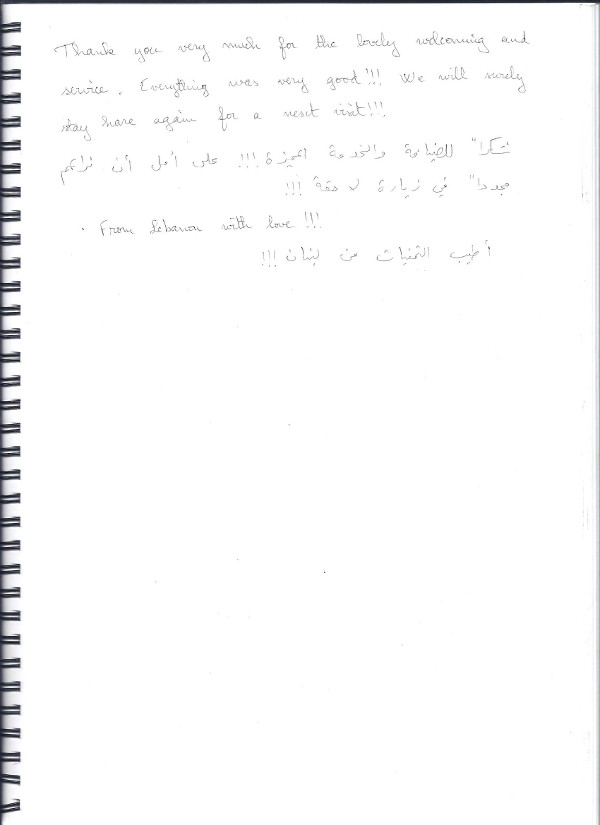 Thank you very much for the lovely welcoming and
service. Everything was very good!!! We will surely
stay hare again for a next visit!!!
شكراً للضيافة والخدمة المميزة!!! على أمل أن نراكم
مجدداً في زيارة لاحقة!!!
. From Lebanon with love!!!
أطيب التمنيات من لبنان!!!